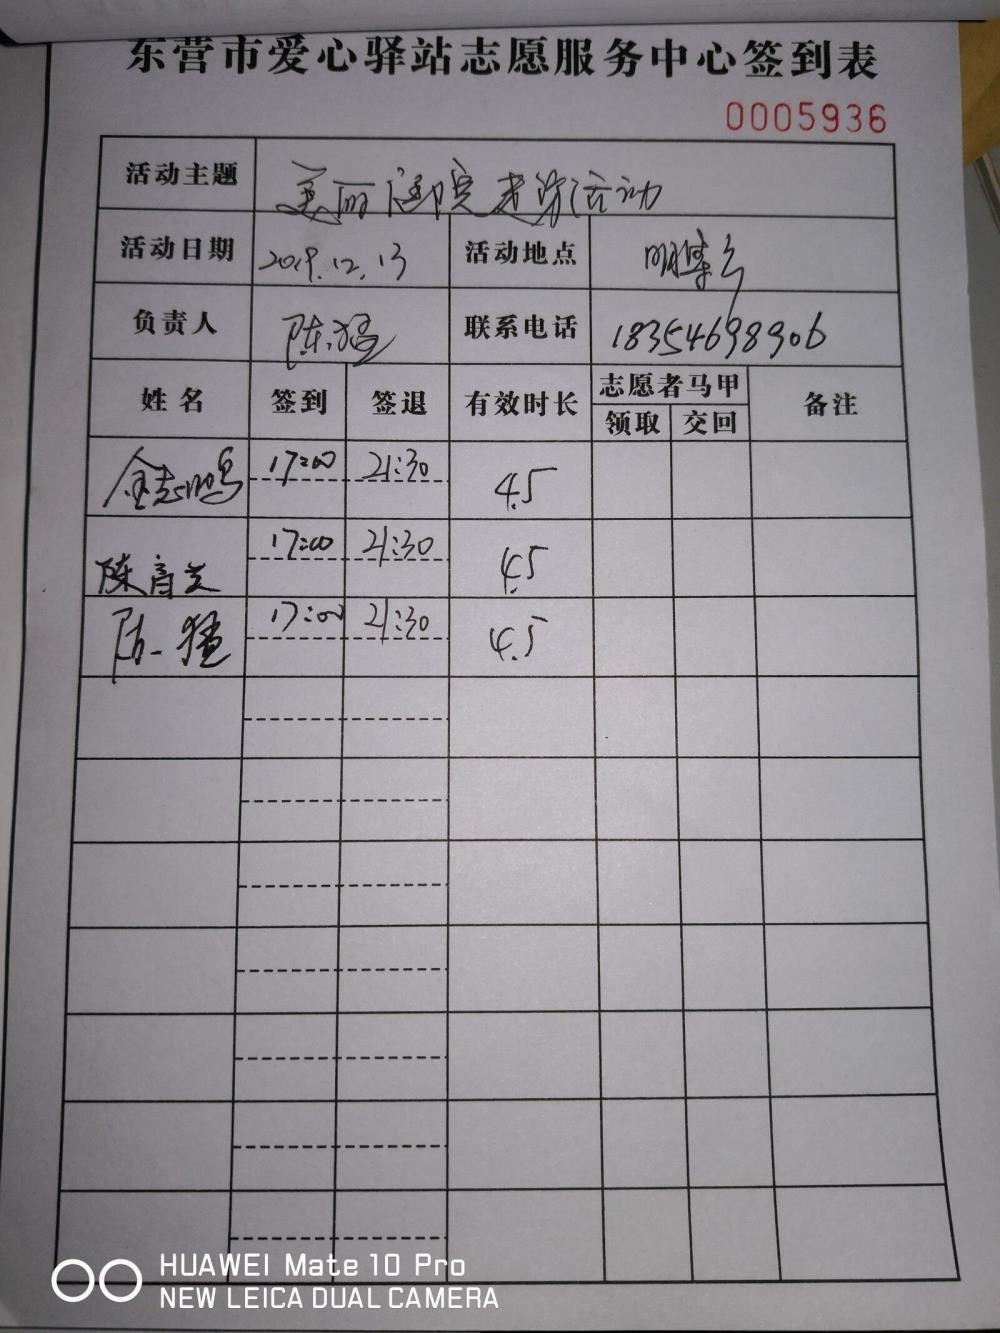 东营市爱心驿站志愿服务中心签到表
0005936
活动主题 美丽庭院走访活动
活动日期 2019.12.13 活动地点 明集乡
负责人 陈猛 联系电话 18354698906
姓名 签到 签退 有效时长 志愿者马甲 备注
领取 交回
金志鹏 17:00 21:30 4.5
陈 17:00 21:30 4.5
陈猛 17:00 21:30 4.5
HUAWEI Mate 10 Pro
NEW LEICA DUAL CAMERA